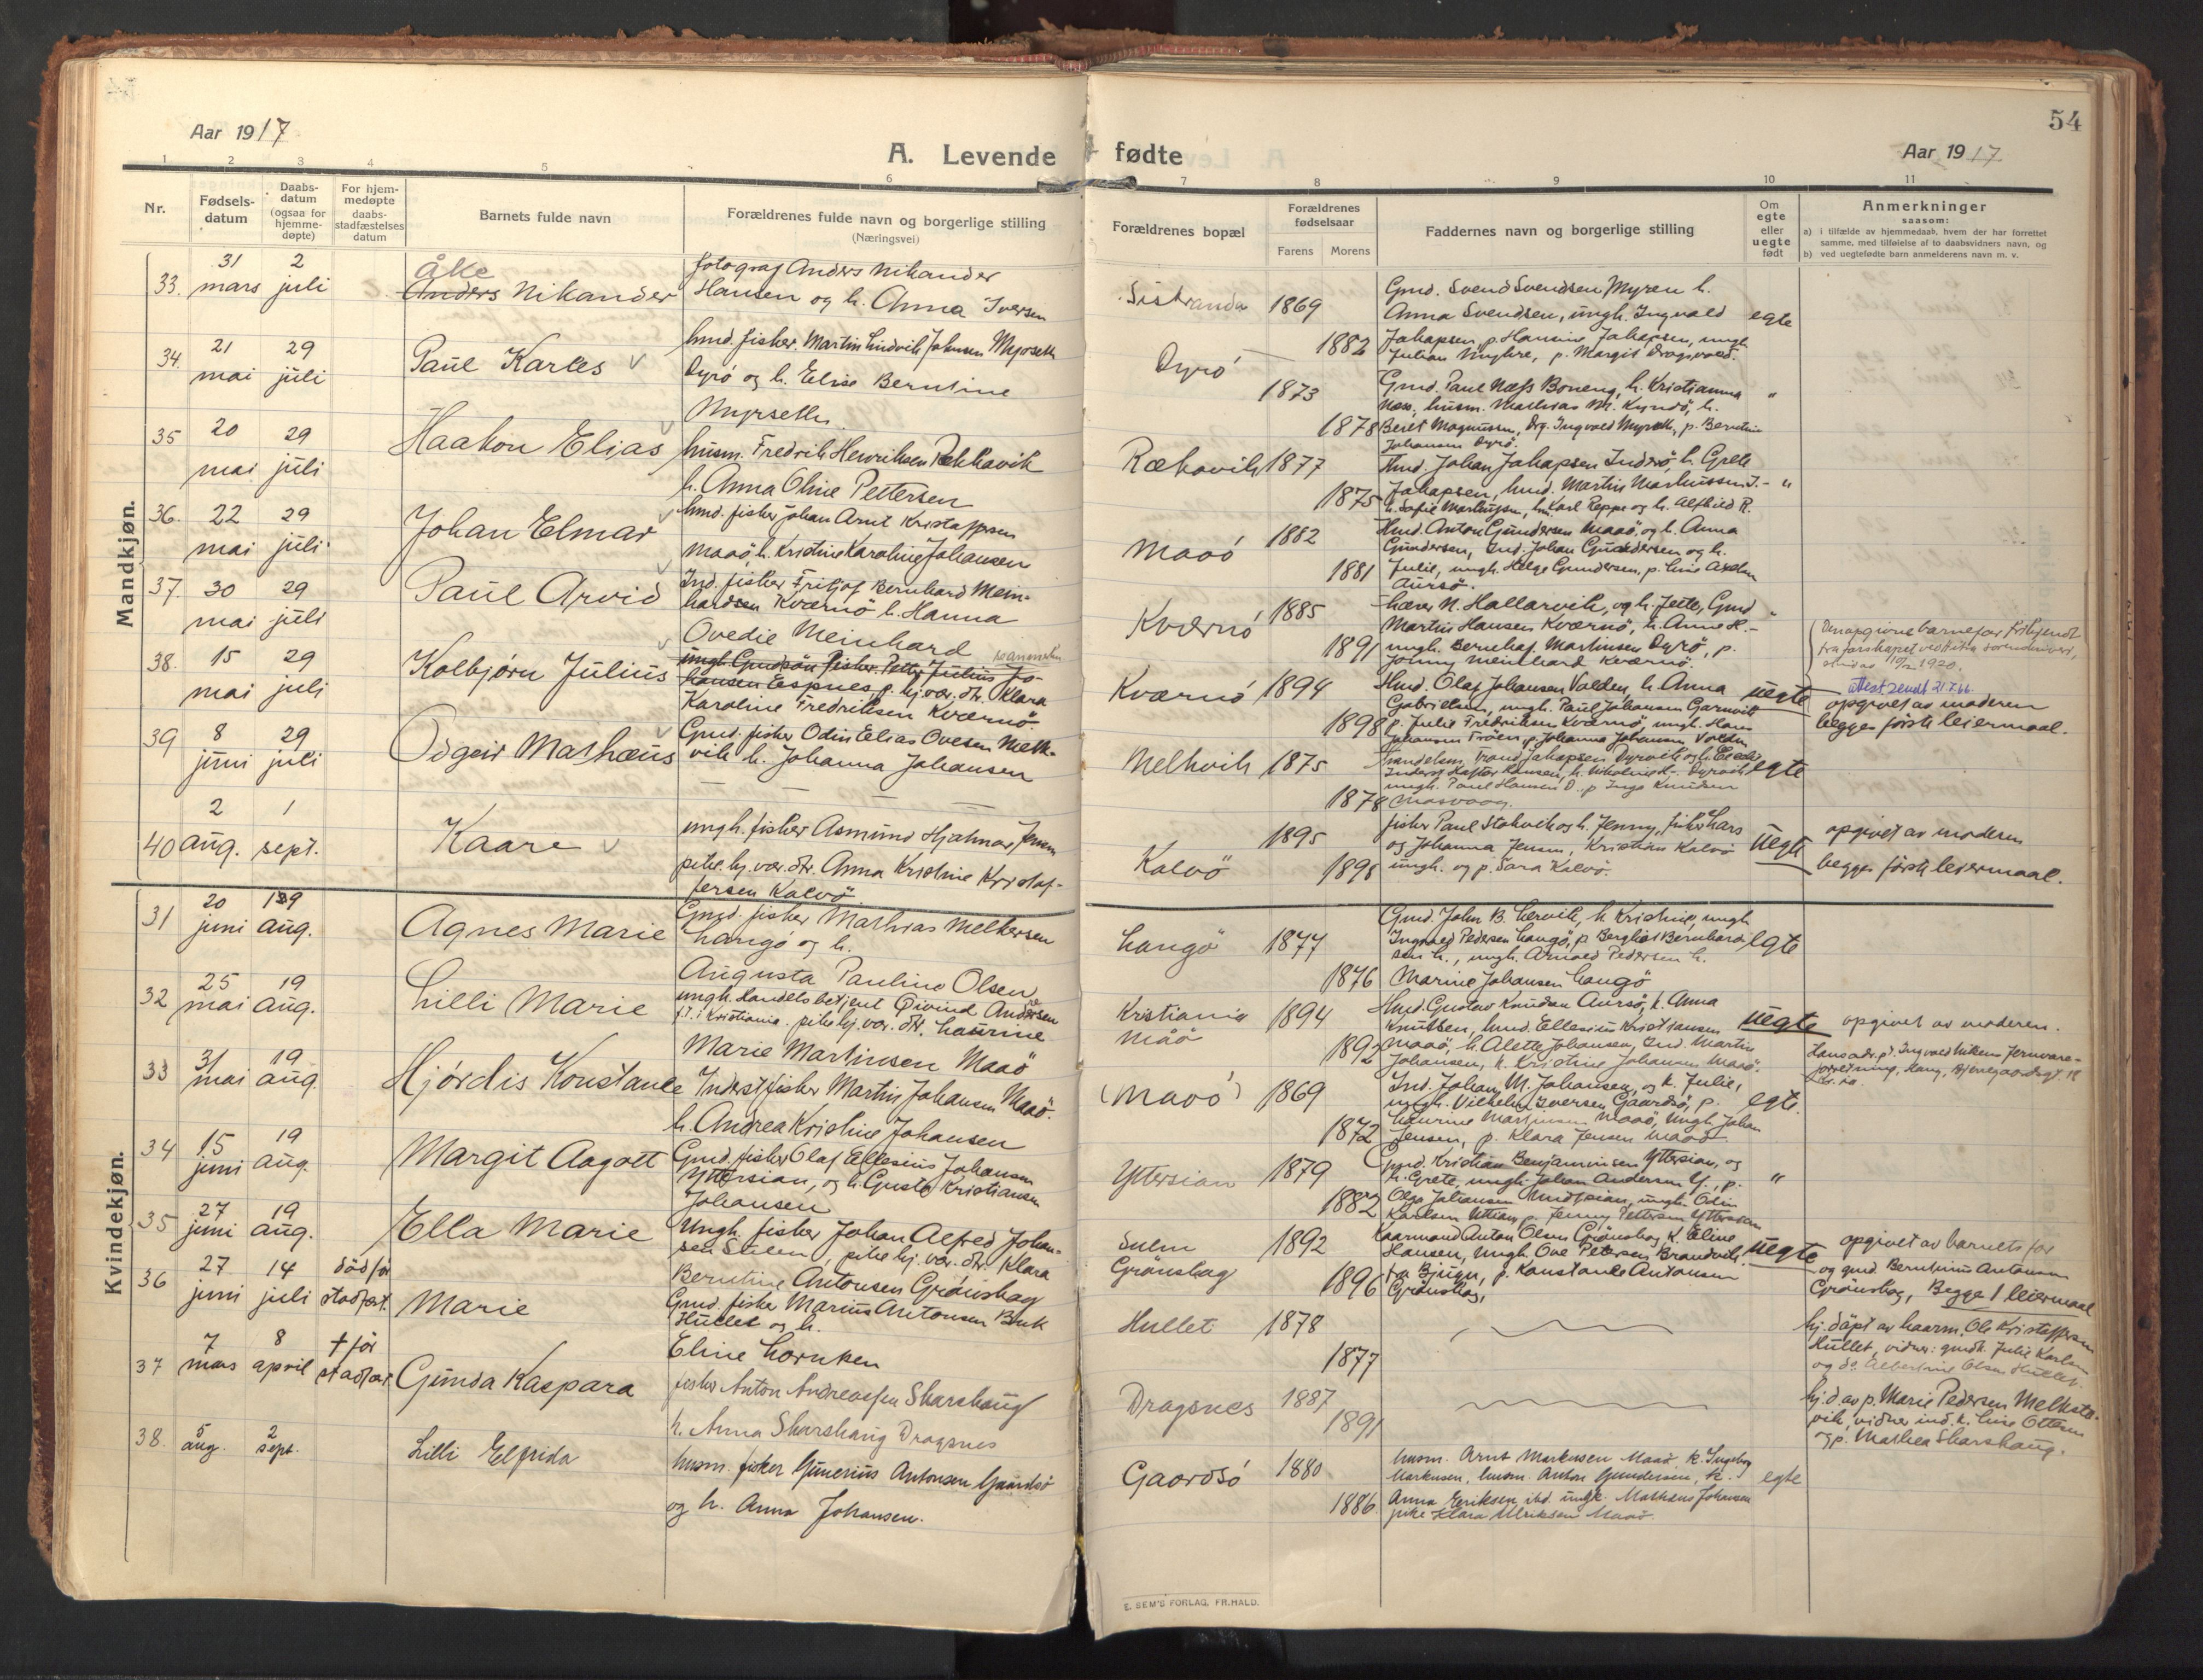 54
Aar 1917
A. Levende fødte
Aar 1917
1 2 3 4 5 6 7 8 9 10 11
Nr.
Fødsels-
datum
Daabs-
datum
(ogsaa for
hjemme-
døpte)
For hjem-
medøpte
daabs-
stadfæstelses
datum
Barnets fulde navn
Forældrenes fulde navn og borgerlige stilling
(Næringsvei)
Forældrenes bopæl
Forældrenes
fødselsaar
Farens Morens
Faddernes navn og borgerlige stilling
Om
egte
eller
uegte
født
Anmerkninger
saasom:
a) i tilfælde av hjemmedaab, hvem der har forrettet
samme, med tilføielse af to daabsvidners navn, og
b) ved uegtefødte barn anmelderens navn m. v.
Mandkjøn.
33. 31 mars 2 juli
Åke
Anders Nikander
fotograf Anders Nikander
Hansen og h. Anna Iversen
Sistranda 1869
1882
Gmd. Svend Svendsen Myren h.
Anna Svendsen, ungh. Ingvald
Jakapsen, p. Hanna Jakapsen, ungh.
Julian Myhre, p. Margit Dragsvold.
egte
34. 21 mai 29 juli
Paul Karles
hmd. fisker Martin Ludvik Johnsen Myrseth
Dyrö og h. Elise Berntine
Myrseth.
Dyrö
1873
1878
Gmd. Paul Næss Boneng, h. Kristianna
Næss, husm. Mathias M. Kyndö, h.
Beret Magnussen, Drg. Ingvald Myrseth, p. Berntine
Johansen Dyrö.
"
35 20 mai 29 juli
Haakon Elias
husm. Fredrik Henriksen Rækkavik
h. Anna Oline Pettersen
Rækavik 1877
1875
Hmd. Johan Jakapsen Inderö, h. Grete
Jakapsen, hmd. Martin Markussen I.
h. Sofie Markussen, hm. Karl Reppe og h. Alfhild R.
"
36. 22 mai 29 juli
Johan Elmar
hmd. fisker Johan Arnt Kristoffersen
Maaö, h. Kristine Karoline Johansen
Maaö
1882
1881
Hmd. Anton Gundersen Maaö, og h. Anna
Gundersen, Ind. Johan Gundersen og h.
Julie, ungh. Helge Gundersen, p. Line Axelsen
Aursö.
37. 30 mai 29 juli
Paul Arvid
Ind. fisker Fritjof Bernhard Mein-
hardsen Kværnö h. Hanna
Ovedie Meinhard
Kværnö
1885
1891
Lærer N. Hallarvik, og h. Jette, Gmd
Martin Hansen Kværnö, h. Anne H.
ungh. Bernhof Martinsen Dyrö, p.
Jonny Meinhard Kværnö.
"
38. 15 mai 29 juli
Kolbjørn Julius
ungh. Gmdsön fisker Petter Julius Jo-
hansen Espnes, p. hj. vær. dtr. Klara
Karoline Fredriksen Kværnö
Kværnö 1894
1898
Hmd. Olaf Johansen Valden, h. Anna
Gabrielsen, ungh. Paul Johansen Garnvik
p. Julie Fredriksen Kværnö, ungh. Hans
Johansen Fröen, p. Johanna Johansen Valden
uegte
Den opgivne barnefar frikjendt
fra farskapet ved
1920.
Attest sendt 21.7.66.
opgivet av moderen
begges förste leiermaal.
39 8 juni 29 juli
Odgeir Mathæus
Gmd. fisker Odin Elias Ovesen Melk-
vik h. Johanna Johansen
Melkvik 1875
1878
egte
40 2 aug. 1 sept.
Kaare
ungh. fisker Asmund Hjalmar Jensen
pike hj. vær. dtr. Anna Kristine Kristof-
fersen Kalvö
Kalvö
1895
1898
fisker Paul Stokvik og h. Jenny, fisker Lars
og Johanna Jensen, Kristian Kalvö
ungh. og p. Sara Kalvö.
uegte
opgivet av moderen
begges förste leiermaal.
Kvindekjøn.
31 20 juni 19 aug.
Agnes Marie
Gmd. fisker Mathias Melkersen
Langö og h.
Augusta Pauline Olsen
Langö 1877
1876
Gmd. John B. Lervik, h. Kristine, ungh
Ingvald Pedersen Langö, p. Bergliot Bernhard-
sen L., ungh. Arnold Pedersen L.
Marine Johansen Langö
egte
32 25 mai 19 aug.
Lilli Marie
ungh. Handelsbetjent Øivind Andersen
f.t. i Kristiania. pike hj. vær. dtr. Laurine
Marie Martinsen Maaö
Kristiania
Måö
1894
1892
Hmd. Gustav Knudsen Aursö, h. Anna
Knutsen, hmd. Ellesius Kristiansen
Maaö, h. Alette Johansen, Ind. Martin
Johansen, h. Kristine Johansen Maaö.
uegte
opgivet av moderen.
Hans adr. p.t. Ingvald Nilsens Jernvare-
forretning,
33 31 mai 19 aug.
Hjördis Konstanse
Inderst fisker Martin Johansen Maaö.
h. Andrea Kristine Johansen
(Maaö) 1869
1872
Ind. Johan M. Johansen, og h. Julie,
ungh. Vilhelm Iversen Gaardsö, p.
Laurine Martinsen Maaö, Ungh. Johan
Jensen, p. Klara Jensen Maaö
egte.
34 15 juni 19 aug.
Margit Aagott
Gmd. fisker Olaf Ellesius Johansen
Yttersian, og h. Gusta Kristiansen
Johansen
Yttersian 1879
1882
Gmd. Kristian Benjaminsen Yttersian, og
h. Grete, ungh. Johan Andersen Y., p.
Olga Johansen Yttersian, ungh. Odin
Karlsen Yttersian p. Jenny Pettersen Yttersian
"
35 27 juni 19 aug.
Ella Marie
Ungh. fisker Johan Alfred Johan-
sen Sulen, pike hj. vær. dtr. Klara
Berntine Antonsen Grönskag
Sulen
Grönskag
1892
1896
Kaarmand Anton Olsen Grönskag, h. Eline
Hansen, ungh. Ove Petersen Brandvik
fra Bjugn, p. Konstanse Antonsen
Grönskag,
uegte
opgivet av barnets far
og gmd. Berntinus Antonsen
Grönskag, Begge 1 leiermaal
36 27 juni 14 juli död før stadfæst.
Marie
Gmd. fisker Marius Antonsen Buk
Hullet og h.
Eline Lornken
Hullet 1878
1877
hj. döpt av kaarm. Ole Kristoffersen
Hullet, vidner: gmdk. Julie Karlsen
og do Albertine Olsen Hullet.
37 7 mars 8 april † før stadfæst
Gunda Kaspara
fisker Anton Andreassen Skarshaug
h. Anna Skarshaug Dragsnes
Dragsnes 1887
1891
hj. d. av p. Marie Pedersen Melksta-
vik, vidner ind. k. Line Ottesen
og p. Mathea Skarshaug.
38. 5 aug. 2 sept.
Lilli Elfrida
husm. fisker Gunerius Antonsen Gaardsö
og h. Anna Johansen.
Gaardsö 1880
1886.
husm. Arnt Markusen Maaö, k. Ingeborg
Markusen, husm. Anton Gundersen, k.
Anna Eriksen, ind. ungk. Mathæus Johansen
pike Klara Ulriksen Maaö
egte
E. SEM'S FORLAG, FR.HALD.